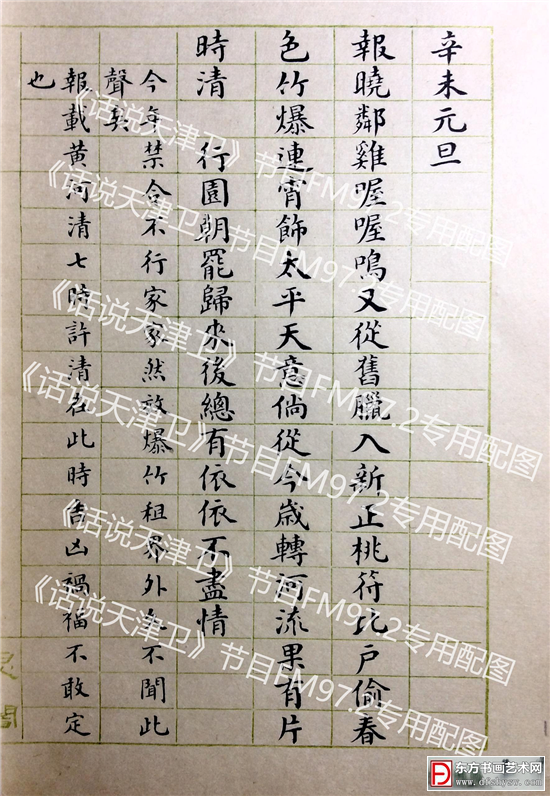 辛未元旦
報曉鄰雞喔喔鳴又從舊臘入新正桃符比戶偷春
色竹爆連宵飾太平天意倘從今歲轉河流果有片
時清 行園朝罷歸來後總有依依不盡情
今年禁令不行家家然放爆竹租界外久不聞此
聲矣
報載黃河清七時許清在此時吉凶禍福不敢定
也
《话说天津卫》节目FM97.2专用配图
《话说天津卫》节目FM97.2专用配图
《话说天津卫》节目FM97.2专用配图
《话说天津卫》节目FM97.2专用配图
《话说天津卫》节目FM97.2专用配图
东方书画艺术网